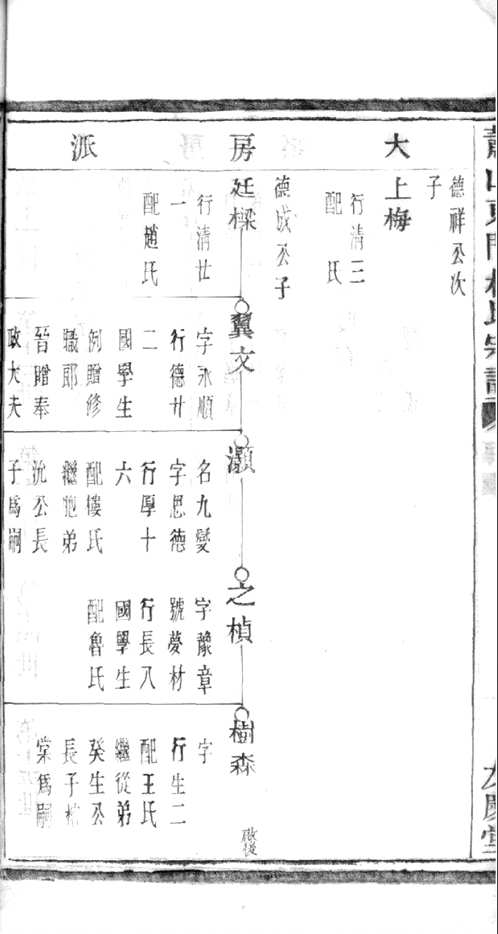 大房派
德祥公次
子
上梅
行清三
配　氏
德成公子
廷樑
行清廿
一
配趙氏
翼文
字永順
行德廿
二
國學生
例贈修
職郎
晉贈奉
政大夫
灝
名九變
字思德
行厚十
六
配樓氏
繼胞弟
沇公長
子為嗣
之楨
字豫章
號夢材
行長八
國學生
配魯氏
樹森
字
行生二
配王氏
繼從弟
癸生公
長子
棠為嗣